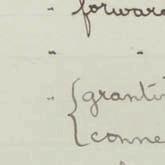 " forward
"    "
" { granti
conne